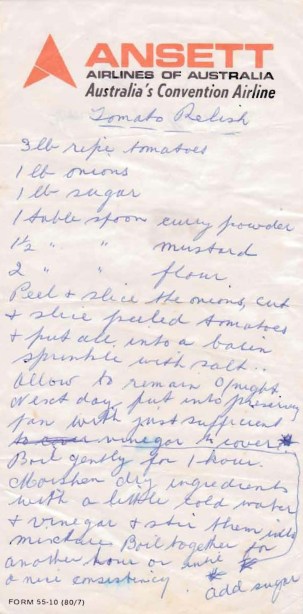 ANSETT
AIRLINES OF AUSTRALIA
Australia's Convention Airline
Tomato Relish
3lb ripe tomatoes
1 lb onions
1 lb sugar
1 table spoon curry powder
1½ " " mustard
2 " " flour
Peel & slice the onions, cut
& slice peeled tomatoes
& put all into a basin
sprinkle with salt..
Allow to remain O/night.
Next day put into preserving
pan with just sufficient
to cover vinegar to cover *
Boil gently for 1 hour.
Moisten dry ingredients
with a little cold water
& vinegar & stir them into
mixture Boil together for
another hour or until * *
a nice consistency. add sugar
FORM 55-10 (80/7)